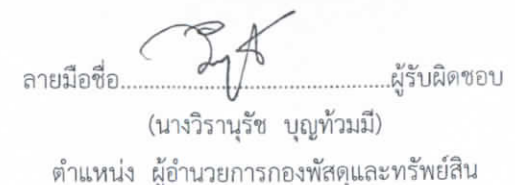 ลายมือชื่อ...........................................ผู้รับผิดชอบ
(นางวิรานุรัช บุญท้วมมี)
ตำแหน่ง ผู้อำนวยการกองพัสดุและทรัพย์สิน